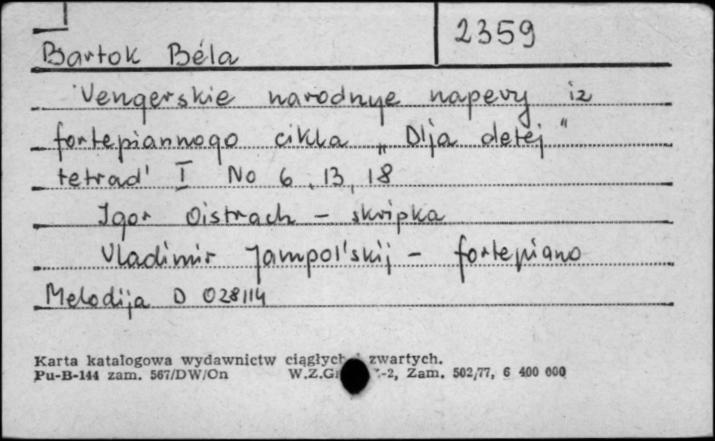 2359
Bartok Béla
Vengerskie narodnye napevy iz
fortepiannogo cikla „Dlja detej"
tetrad' I No 6, 13, 18
Igor Oistrach – skripka
Vladimir Jampol'skij – fortepiano
Melodija D 028114
Karta katalogowa wydawnictw ciągłych zwartych.
Pu-B-144 zam. 567/DW/On W.Z.G -2, Zam. 502/77, 6 400 000